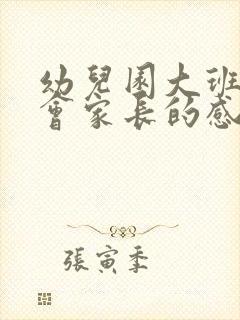 幼兒園大班
會家長的感
張寅季